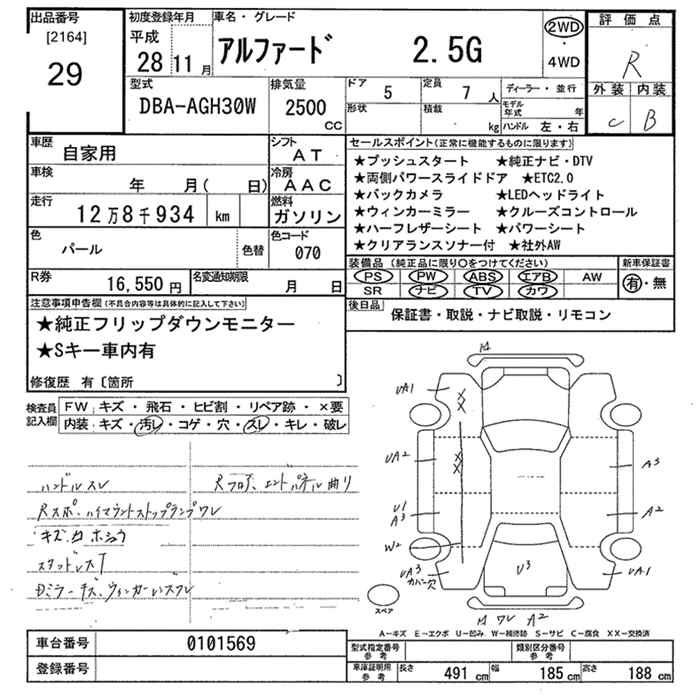 出品番号
[2164]
29
初度登録年月
平成
28 11 月
車名・グレード
アルファード 2.5G
2WD
・
4WD
評価点
R
外装 内装
C B
型式
DBA-AGH30W
排気量
2500
CC
ドア 5
定員 7 人
形状
積載 kg
ディーラー・並行
モデル年式 年
ハンドル 左・右
車歴
自家用
シフト
AT
車検
年 月( 日)
冷房
AAC
走行
12万8千934 km
燃料
ガソリン
色
パール
色替
色コード
070
R券
16,550 円
名変通知期限
月 日
セールスポイント(正常に機能するものに限ります)
★プッシュスタート ★純正ナビ・DTV
★両側パワースライドドア ★ETC2.0
★バックカメラ ★LEDヘッドライト
★ウィンカーミラー ★クルーズコントロール
★ハーフレザーシート ★パワーシート
★クリアランスソナー付 ★社外AW
装備品(純正品に限り○をつけてください)
PS PW ABS エアB AW
SR ナビ TV カワ
新車保証書
有・無
後日品
保証書・取説・ナビ取説・リモコン
注意事項申告欄(不具合内容等は具体的に記入して下さい)
★純正フリップダウンモニター
★Sキー車内有
修復歴 有〔箇所 〕
検査員記入欄
FW キズ・飛石・ヒビ割・リペア跡・×要
内装 キズ・汚レ・コゲ・穴・スレ・キレ・破レ
ハンドルスレ
Rフロア、エンドパネル曲り
Rスポ・ハイマウントストップランプワレ
スタッドレスT
UA1
UA2
U1
A3
W2
UA3
XX
XX
U3
A3
A2
UA1
ワレ A2
スペア
A-キズ E-エクボ U-凹み W-補修跡 S-サビ C-腐食 XX-交換済
車台番号 0101569
登録番号
型式指定番号
参考
類別区分番号
参考
車庫証明用
参考
長さ 491 cm 幅 185 cm 高さ 188 cm